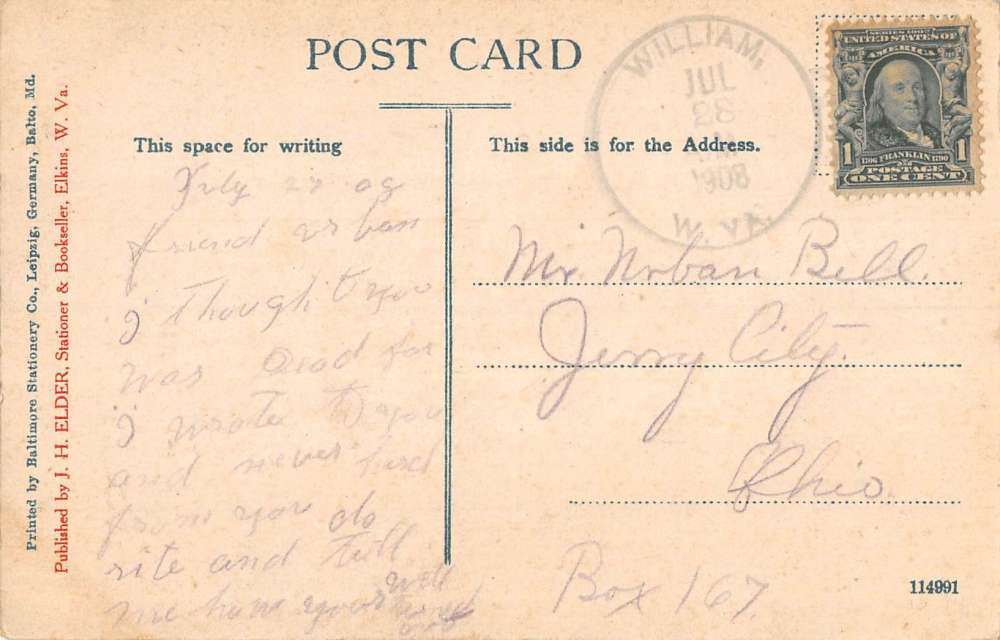 POST CARD
This space for writing
This side is for the Address.
Printed by Baltimore Stationery Co., Leipzig, Germany, Balto, Md.
Published by J. H. ELDER, Stationer & Bookseller, Elkins, W. Va.
WILLIAM,
JUL
28
1908
W. VA.
SERIES 1902
UNITED STATES OF
AMERICA
1 1
1706 FRANKLIN 1790
POSTAGE
ONE CENT
July 28 08
friend Urban
I thought you
was Dead for
I wrote to you
and never herd
from you do
rite and tell
me how your well
Mr. Urban Bell.
Jerry City.
Ohio.
Box 167.
114991